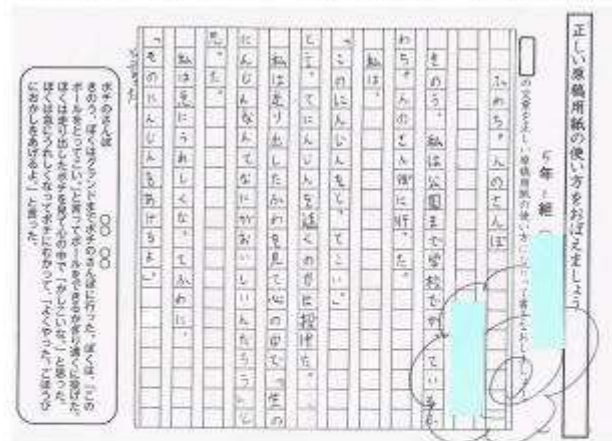 正しい原稿用紙の使い方をおぼえましょう
5年1組
の文章を正しい原稿用紙の使い方に
ふわちゃんのさんぽ
きのう、私は公園まで学校でか っている
わちゃんのさんぽに行った。
私は、
「このにんじんをとってこい。」
と言ってにんじんを遠くの方に投げた。
私は走り出したふわを見て心の中で「生の
にんじんなんてなにがおいしいんだろう」と
思った。
私は急にうれしくなってふわに、
「そのにんじんをあげるよ」
と言った
ポチのさんぽ
○○ ○○
きのう、ぼくはグランドまでポチのさんぽに行った。ぼくは、「この
ボールをとってこい。」と言ってボールをできるかぎり遠くに投げた。
ぼくは走り出したポチを見て心の中で「かしこいな。」と思った。
ぼくは急にうれしくなってポチにむかって、「よくやった、ごほうび
におかしをあげるよ。」と言った。